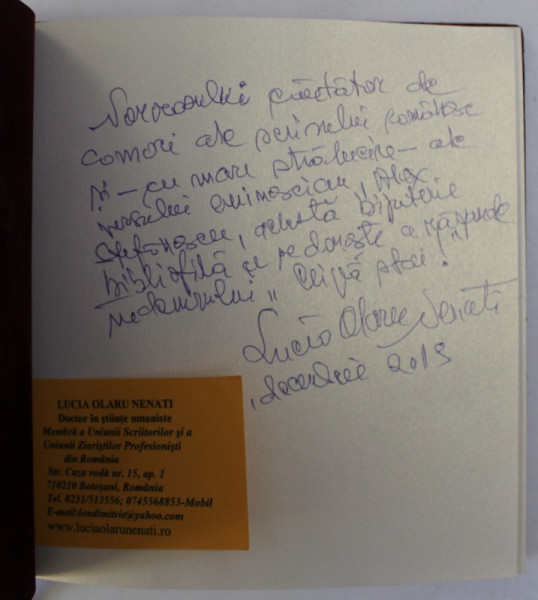 Norocosului căutător de
comori ale scrisului românesc
și – cu mare strălucire – ale
versului eminescian, Alex
Ștefănescu, această bijuterie
bibliofilă ce se dorește a răspunde
nedumeririlor „
Lucia Olaru Nenati
decembrie 2013
LUCIA OLARU NENATI
Doctor în științe umaniste
Membră a Uniunii Scriitorilor și a
Uniunii Ziariștilor Profesioniști
din România
Str. Cuza vodă nr. 15, ap. 1
710210 Botoșani, România
Tel. 0231/513556; 0745568853-Mobil
E-mail:londimitrie@yahoo.com
www.luciaolarunenati.ro